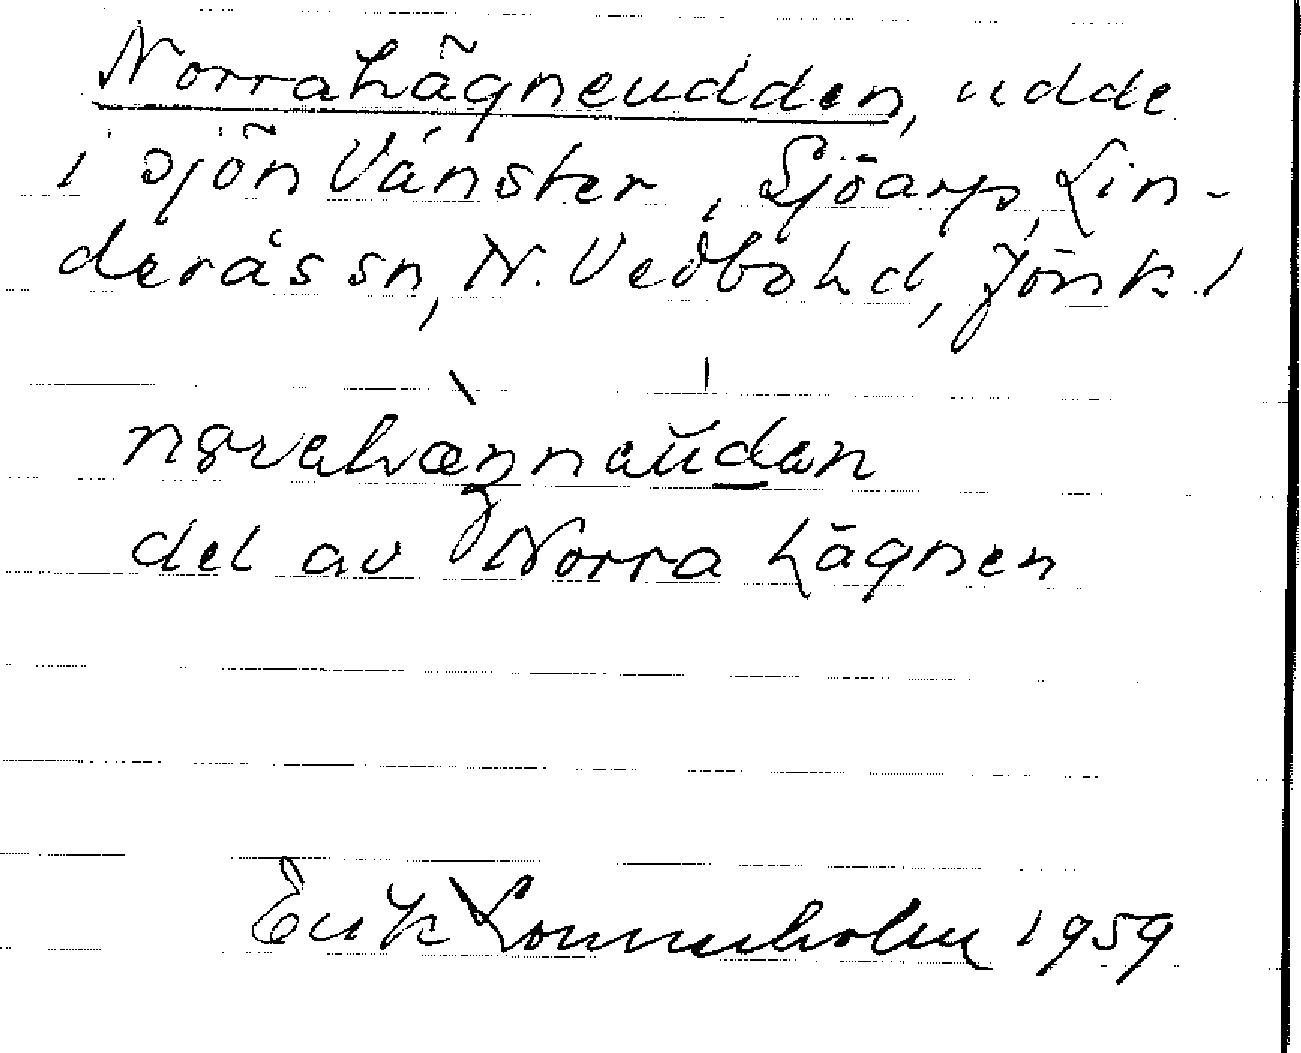 Norrahägneudden, udde
i sjön Vänster, Sjöarp, Lin-
derås sn, N. Vedbo hd, Jönk l
del av Norra hägnen
Erik 1959